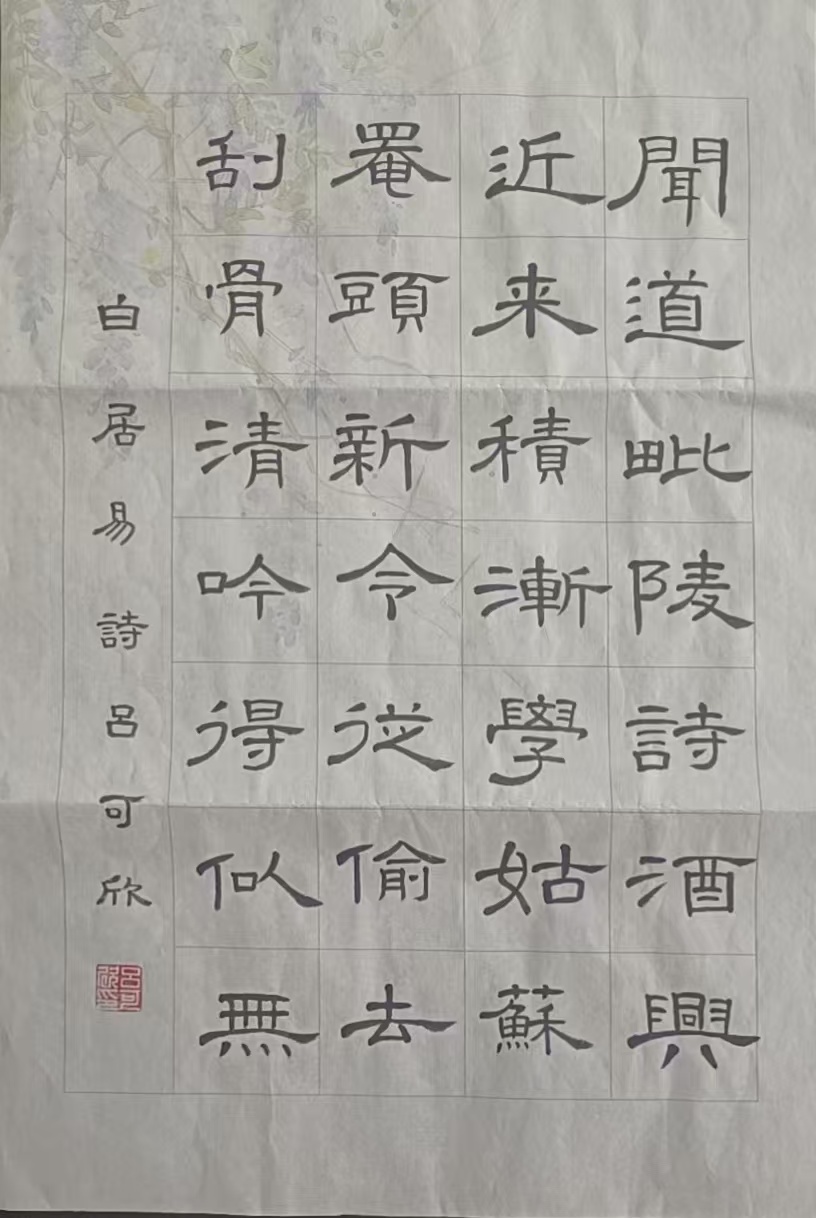 聞道毗陵詩酒興
近来積漸學姑蘇
罨頭新令從偷去
刮骨清吟得似無
白居易詩呂可欣